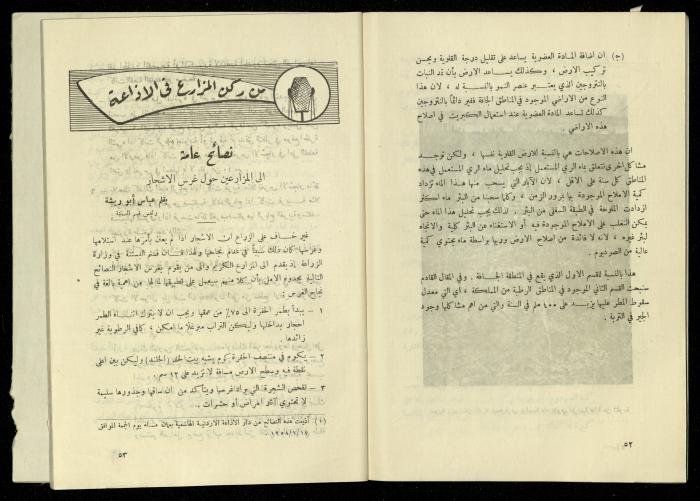 (ج) ان اضافة المادة العضوية يساعد على تقليل درجة القلوية ويحسن
تركيب الارض ، وكذلك يساعد الارض بأن تمد النبات
بالنتروجين الذي يعتبر عنصر النمو بالنسبة له ، لان هذا
النوع من الاراضي الموجود في المناطق الجافة فقير دائماً بالنتروجين
كذلك تساعد المادة العضوية عند استعمال الكبريت في اصلاح
هذه الاراضي .
ان هذه الاصلاحات هي بالنسبة للارض القلوية نفسها ، ولكن توجد
مشاكل اخرى تتعلق بماء الري المستعمل إذ يجب تحليل ماء الري المستعمل في هذه
المناطق كل سنة على الاقل ، لان الآبار التي يسحب منها هذا الماء تزداد
كمية الاملاح الموجودة بها بمرور الزمن ، وكلما سحبنا من البئر ماء اكثر
ازدادت الملوحة في الطبقة السفلى من البئر . لذلك يجب تحليل هذا الماء حتى
يمكن التغلب على الاملاح الموجودة فيه أو الاستغناء عن البئر كلية والاتجاه
لبئر غيره ، لانه لا فائدة من اصلاح الارض وريها بواسطة ماء يحتوي كمية
عالية من الصوديوم .
هذا بالنسبة للقسم الاول الذي يقع في المنطقة الجافة . وفي المقال القادم
سنبحث القسم الثاني الموجود في المناطق الرطبة من المملكة ، أي التي معدل
سقوط المطر عليها يزيد على ٤٠٠ ملم في السنة والتي من اهم مشاكلها وجود
الجير في التربة .
٥٢
من ركن المزارع في الاذاعة
نصائح عامة
الى المزارعين حول غرس الاشجار
بقلم عباس أبو ريشة
رئيس قسم البستنة
غير خاف على الزراع ان الاشجار اذا لم يعن بأمرها عند استلامها
وغرسها كان ذلك سبباً في عدم نجاحها ولهذا فان قسم البستنة في وزارة
الزراعة إذ يتقدم الى المزارع الكريم والى من يقوم بغرس الاشجار بالنصائح
التالية يحدوه الامل بأن كلا منهم سيعمل على تطبيقها لما لها من اهمية بالغة في
نجاح الغرس :
١ – يبدأ بطمر الحفرة الى ٧٥٪ من عمقها ويجب ان لا يترك اثناء الطمر
احجار بداخلها وليكن التراب مترغلاً ما امكن ، كافي الرطوبة غير
زائدها .
٢ – يكوم في منتصف الحفرة كوم يشبه بيت الخلد (الخلند) وليكن بين اعلى
نقطة فيه وسطح الارض مسافة لا تزيد على ١٢ سم .
٣ – تفحص الشجرة التي يراد غرسها ويتأكد من ان ساقها وجذورها سليمة
لا تحتوي آثار امراض أو حشرات ..
(١) أذيعت هذه النصائح من دار الاذاعة الاردنية الهاشمية بعمان مساء يوم الجمعة الموافق
٥٣